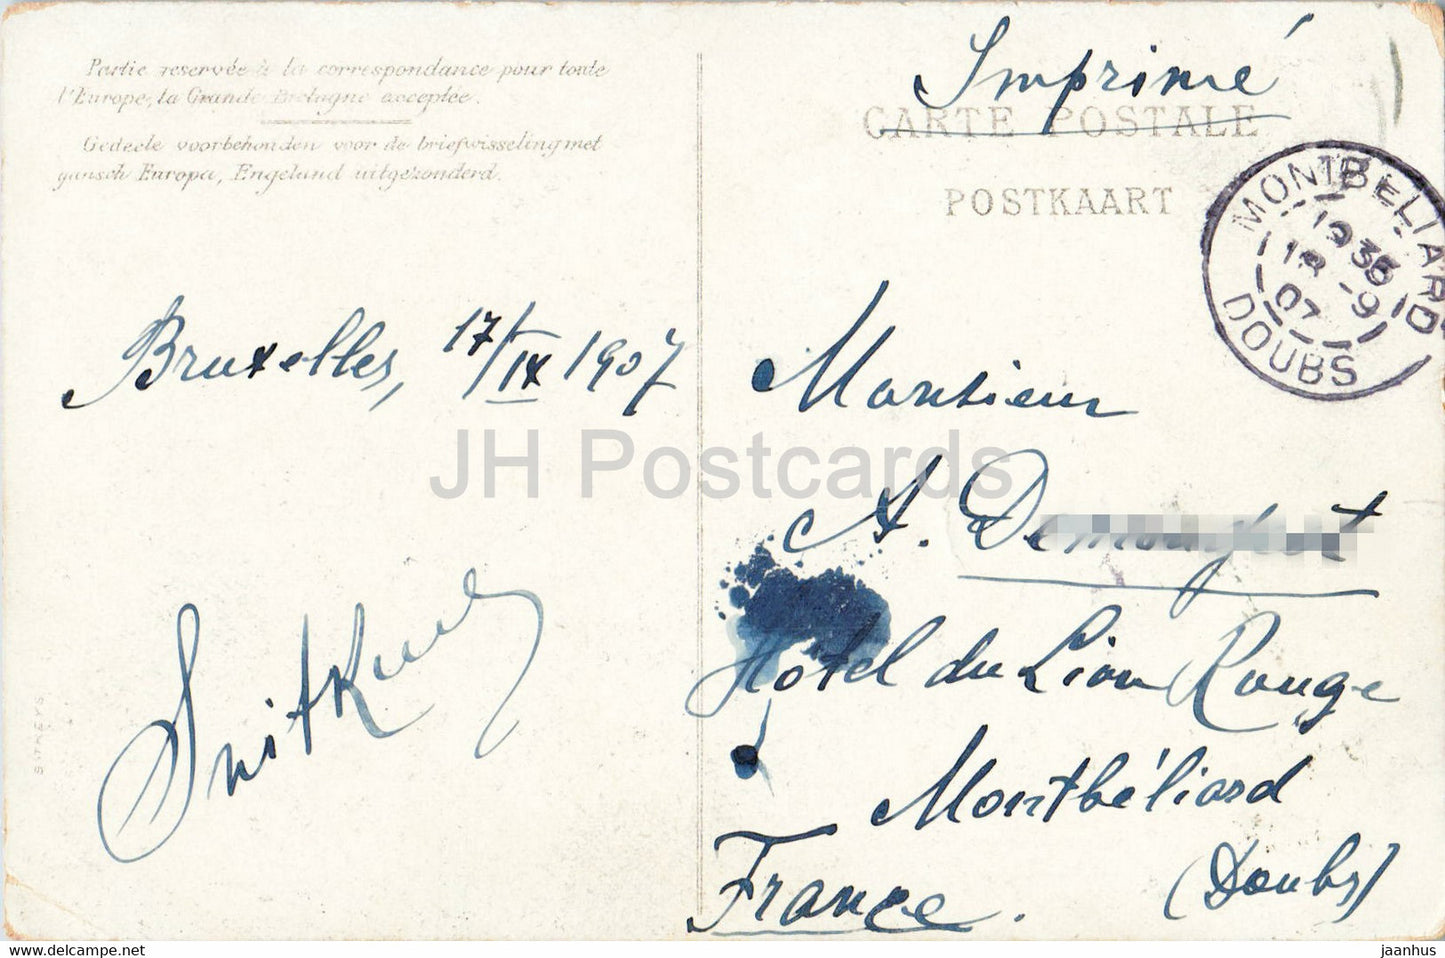 Partie reservée à la correspondance pour toute
l'Europe, la Grande Bretagne acceptée.
Gedeele voorbehouden voor de briefwisseling met
gansch Europa, Engeland uitgezonderd.
Imprimé
CARTE POSTALE
POSTKAART
MONTBELIARD
18 -9
07
DOUBS
Bruxelles, 17/IX 1907
Monsieur
A.
Hôtel du Lion Rouge
Montbéliard
(Doubs)
France.
JH Postcards
www.delcampe.net
jaanhus